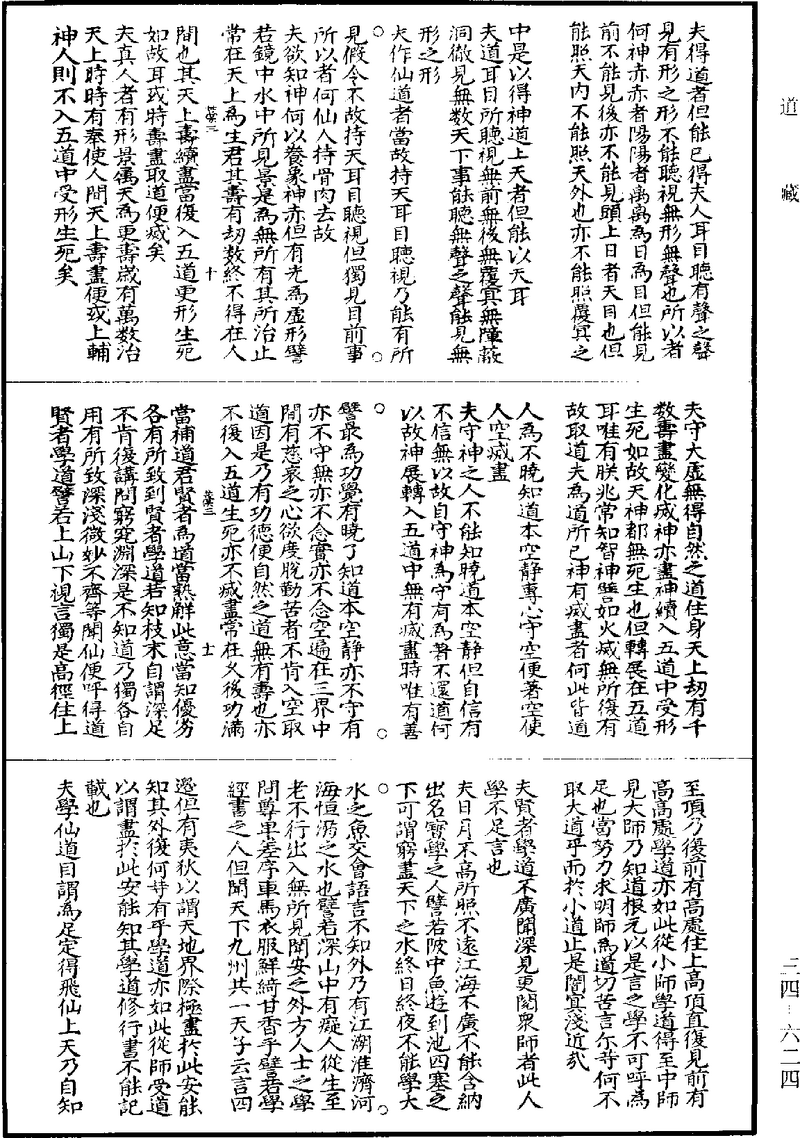 道藏
夫得道者但能已得夫人耳目聽有聲之聲
見有形之形不能聽視無形無聲也所以者
何神赤赤者陽陽者离离為日為目但能見
前不能見後亦不能見頭上日者天目也但
能照天內不能照天外也亦不能照覆冥之
中是以得神道上天者但能以天耳
夫道耳目所聽視無前無後無覆冥無障蔽
洞徹見無數天下事能聽無聲之聲能見無
形之形
夫作仙道者當故持天耳目聽視乃能有所
見假令不故持天耳目聽視但獨見目前事
所以者何仙人持骨肉去故
夫欲知神何以養象神亦但有光為虛形譬
若鏡中水中所見景是為無所有其所治止
常在天上為生君其壽有劫數終不得在人
十
間也其天上壽續盡當復入五道更形生死
如故耳或時壽盡取道便滅矣
夫真人者有形景屬天為更壽歲有萬數治
天上時時有奉使人間天上壽盡便或上輔
神人則不入五道中受形生死矣
夫守大虛無得自然之道住身天上劫有千
數壽盡變化成神亦盡神續入五道中受形
生死如故天神都無死生也但轉展在五道
耳唯有朕兆常知智神譬如火滅無所復有
故取道夫為道所已神有滅盡者何此皆道
人為不曉知道本空静專心守空便著空使
人空滅盡
夫守神之人不能知曉道本空静但自信有
不信無以故自守神為守有為著不還道何
以故神展轉入五道中無有滅盡時唯有善
譬最為功覺有曉了知道本空静亦不守有
亦不守無亦不念實亦不念空遍在三界中
間有慈哀之心欲度脫勤苦者不肯入空取
道因是乃有功德便自然之道無有壽也亦
不復入五道生死亦不滅盡常在久後功滿
士
當補道君賢者為道當熟解此意當知優劣
各有所致到賢者學道若知枝末自謂深足
不肯復講問窮究淵深是不知道乃獨各自
用有所致深淺微妙不齊等聞仙便呼得道
賢者學道譬若上山下視言獨是高徑住上
至頂乃復前有高處住上高頂直復見前有
高高處學道亦如此從小師學道得至中師
見大師乃知道根元以是言之學不可呼為
足也當努力求明師為道切苦言尔等何不
取大道乎而於小道止是闇冥淺近哉
夫賢者學道不廣聞深見更閱衆師者此人
學不足言也
夫日月不高所照不遠江海不廣不能含納
出名寶學之人譬若陂中魚遊到池四塞之
下可謂窮盡天下之水終日終夜不能學大
水之魚交會語言不知外乃有江湖淮濟河
海恒溺之水也譬若深山中有癡人從生至
老不行出入無所見聞安之外方人士之學
問尊卑差序車馬衣服鮮綺甘香乎譬若學
經書之人但聞天下九州共一天子云言四
邊但有夷狄以謂天地界際極盡於此安能
知其外復何等有乎學道亦如此從師受道
以謂盡於此安能知其學道修行書不能記
載也
夫學仙道自謂為足定得飛仙上天乃自知
三四—六二四